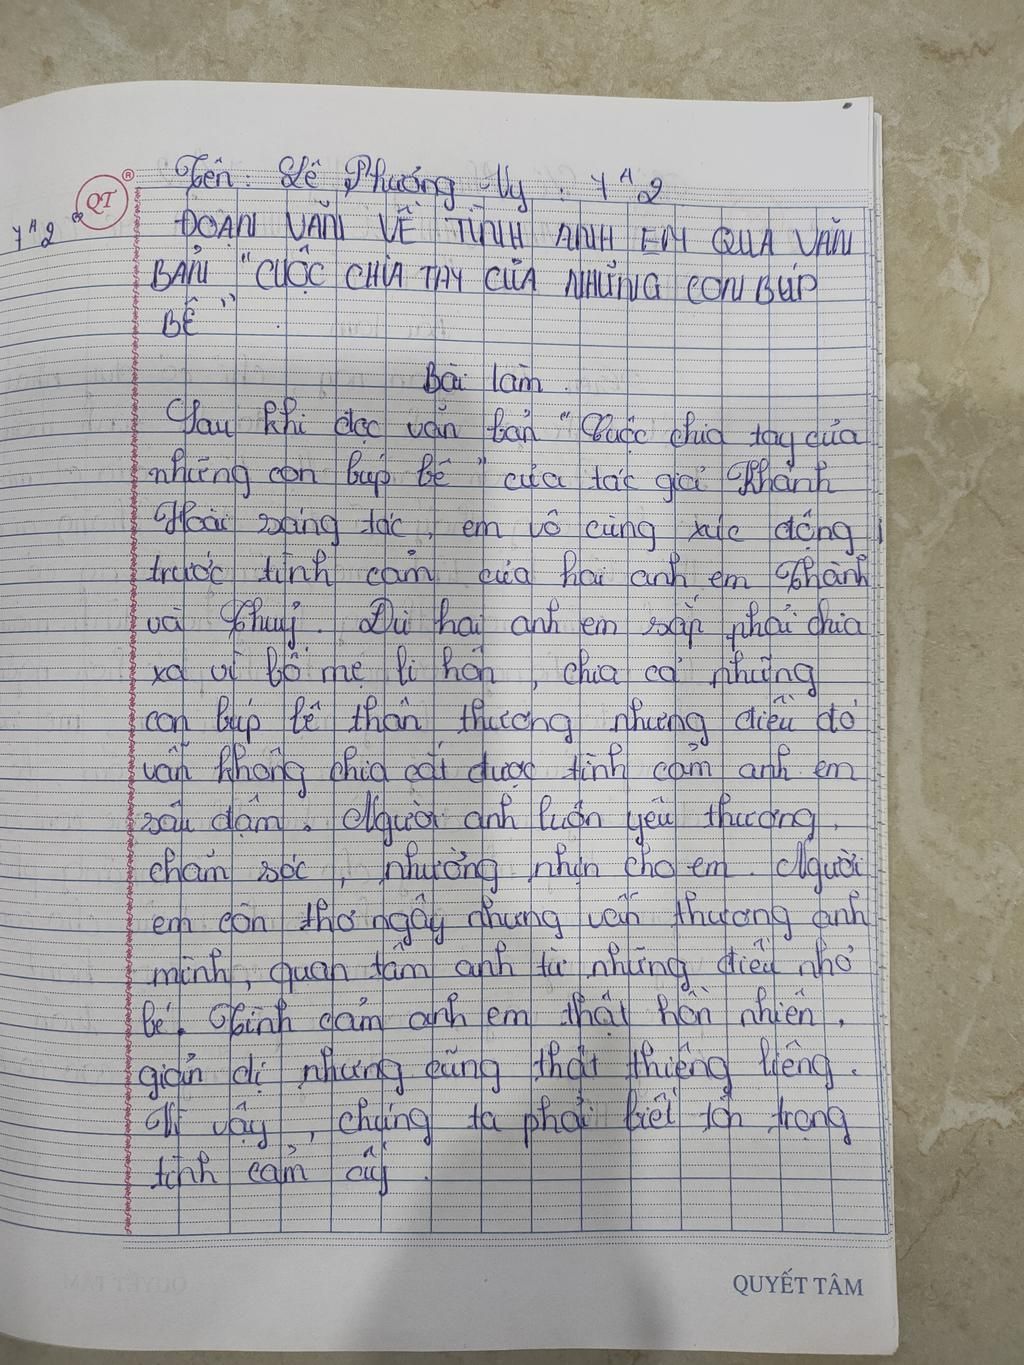 QT ®
Tên: Lê Phương My . 7A2
7A2
ĐOẠN VĂN VỀ TÌNH ANH EM QUA VĂN
BẢN "CUỘC CHIA TAY CỦA NHỮNG CON BÚP
BÊ".
Bài làm.
Sau khi đọc văn bản "Cuộc chia tay của
những con búp bê" của tác giả Khánh
Hoài sáng tác, em vô cùng xúc động
trước tình cảm của hai anh em Thành
và Thuỷ. Dù hai anh em sắp phải chia
xa vì bố mẹ li hôn, chia cả những
con búp bê thân thương nhưng điều đó
vẫn không chia cắt được tình cảm anh em
sâu đậm. Người anh luôn yêu thương,
chăm sóc, nhường nhịn cho em. Người
em còn thơ ngây nhưng vẫn thương anh
mình, quan tâm anh từ những điều nhỏ
bé. Tình cảm anh em thật hồn nhiên,
giản dị nhưng cũng thật thiêng liêng.
Vì vậy, chúng ta phải biết tôn trọng
tình cảm ấy.
QUYẾT TÂM